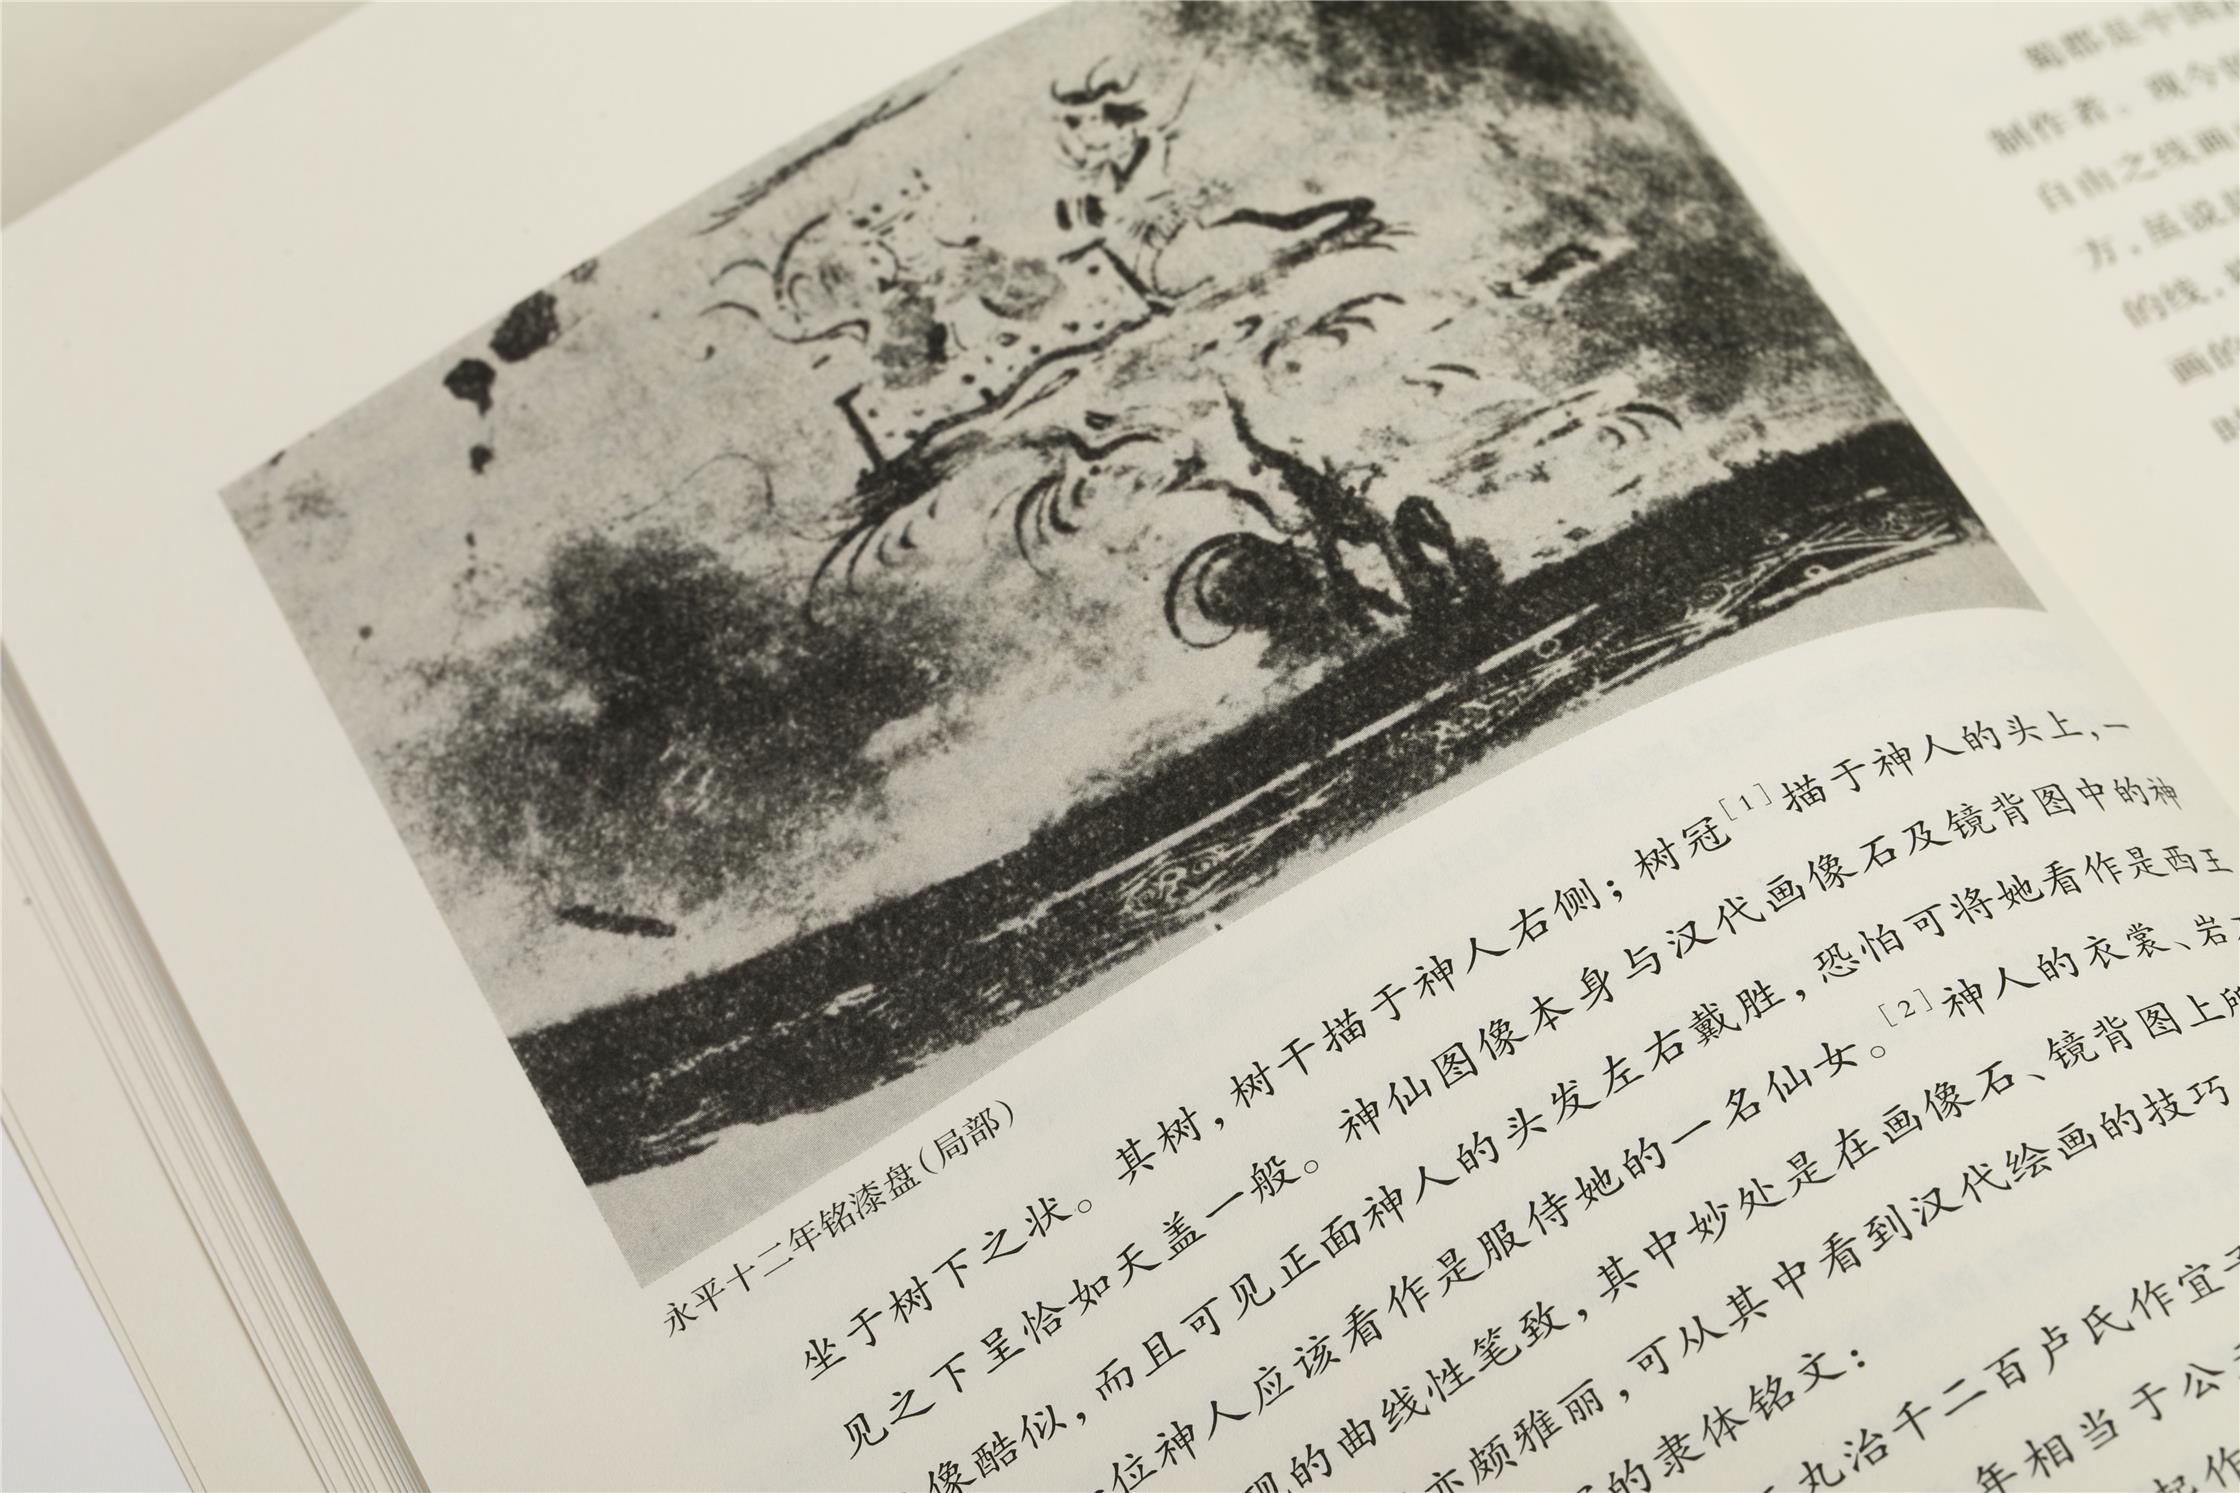 永平十二年铭漆盘（局部）
坐于树下之状。其树，树干描于神人右侧；树冠[1]描于神人的头上，一
见之下呈恰如天盖一般。神仙图像本身与汉代画像石及镜背图中的神
像酷似，而且可见正面神人的头发左右戴胜，恐怕可将她看作是西王
位神人应该看作是服侍她的一名仙女。[2]神人的衣裳、岩
的曲线性笔致，其中妙处是在画像石、镜背图上所
亦颇雅丽，可从其中看到汉代绘画的技巧
的隶体铭文：
丸治千二百卢氏作宜
年相当于公
起作
蜀郡是中国
制作者。现今
自由之线画
方，虽说
的线，
画的